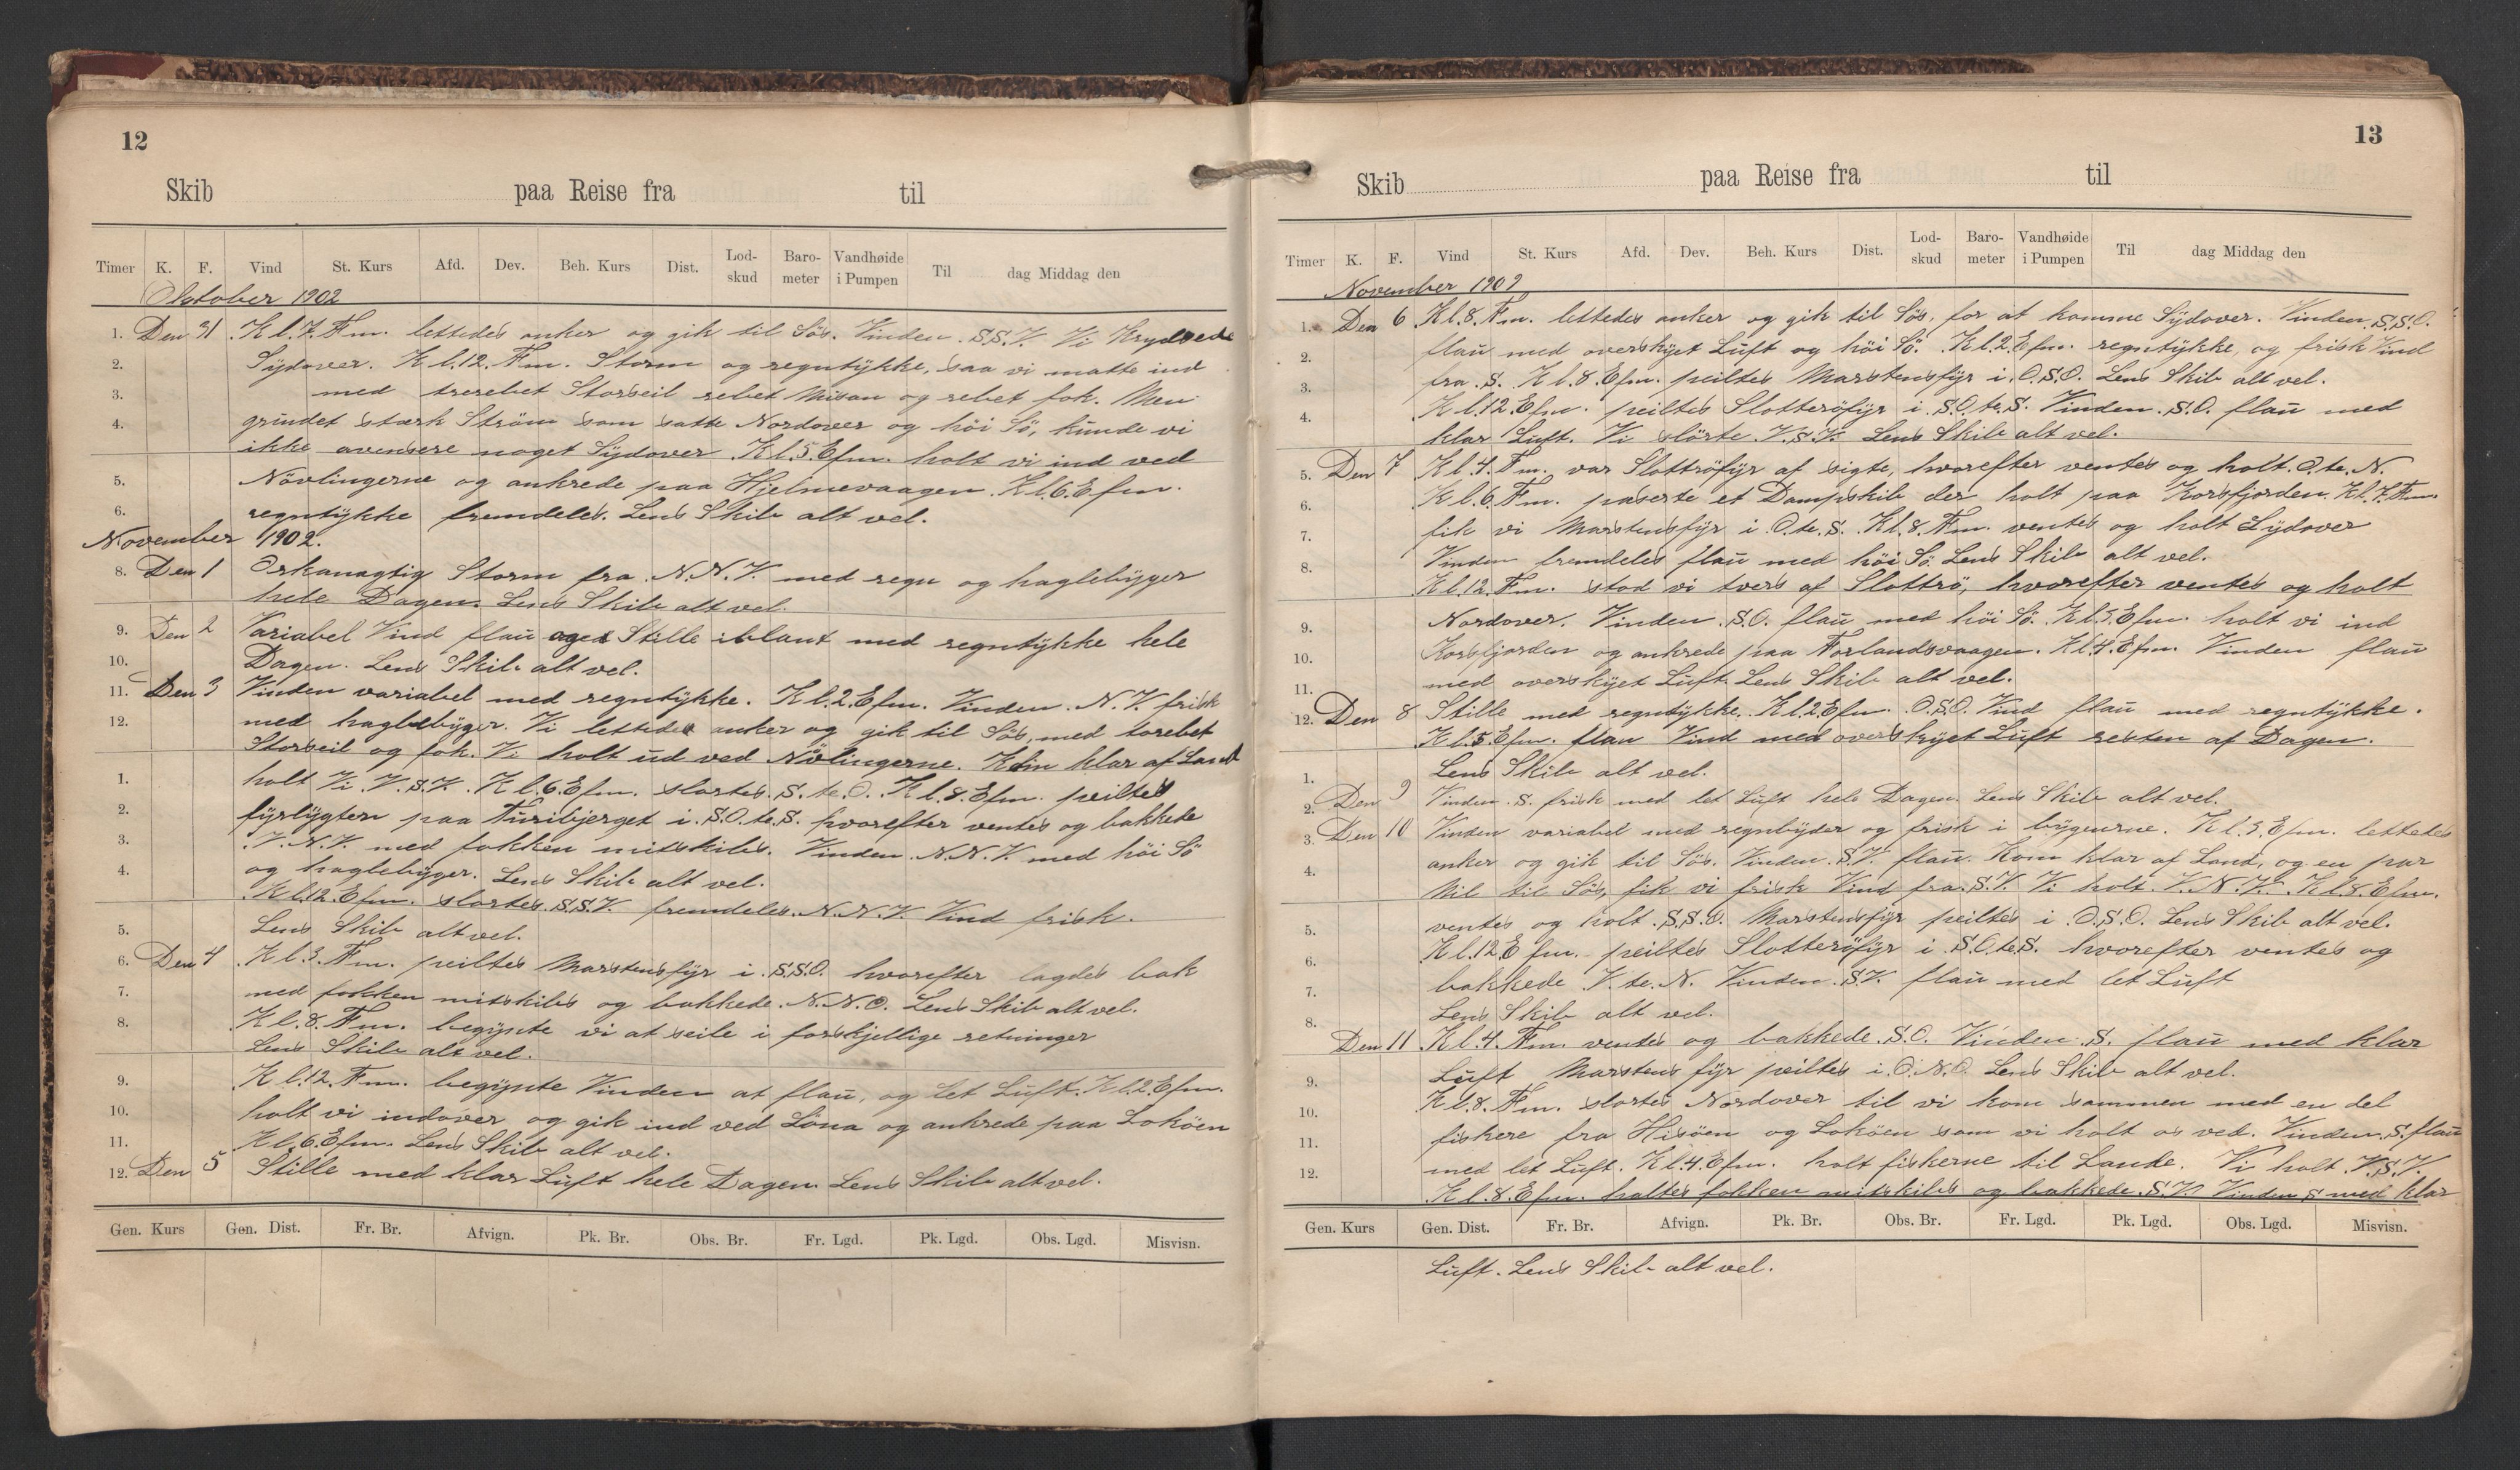 12
Skib paa Reise fra til
Timer K. F. Vind St. Kurs Afd. Dev. Beh. Kurs Dist. Lod-skud Baro-meter Vandhøide i Pumpen Til dag Middag den
Oktober 1902
1. Den 31 Kl. 7. Fm. lettedes anker og gik til Søs. Vinden S.S.V. Vi Krydsede
2. Sydover. Kl. 12. Fm. Storm og regntykke, saa vi matte ind
3. med trerebet Storseil rebet Misan og rebet fok. Men
4. grundet stærk Strøm som satte Nordover og høi Sö, kunde vi
ikke avensere noget Sydover Kl. 5. Efm. holt vi ind ved
5. Növlingerne og ankrede paa Hjelmevaagen. Kl. 6. Efm.
6. regntykke fremdeles. Lens Skib alt vel.
November 1902.
8. Den 1 Orkanagtig Storm fra N.N.V. med regn og haglebyger
hele Dagen. Lens Skib alt vel.
9. Den 2 Variabel Vind flau og Stille iblant med regntykke hele
10. Dagen. Lens Skib alt vel.
11. Den 3 Vinden variabel med regntykke. Kl. 2. Efm. Vinden N.V. frisk
12. med haglebyger. Vi lettede anker og gik til Søs, med torebet
Storseil og fok. Vi holt ud ved Növlingerne. Kom klar af Land
1. holt Vi V.S.V. Kl. 6. Efm. slortes S. te. O. Kl. 8. Efm. peiltes
2. fyrlygten paa Turibjerget i S.O. te. S. hvorefter ventes og bakkede
3. V.N.V. med fokken mitskibs. Vinden N.N.V. med höi Sö
4. og haglebyger. Lens Skib alt vel.
Kl. 12. Efm. slortes S.S.V. fremdeles N.N.V. Vind frisk.
5. Lens Skib alt vel.
6. Den 4 Kl. 3. Fm. peiltes Marstensfyr i S.S.O. hvorefter lagdes bak
7. med fokken mitskibs og bakkede N.N.O. Lens Skib alt vel.
8. Kl. 8. Fm. begynte vi at seile i forskjellige retninger
Lens Skib alt vel.
9. Kl. 12. Fm. begynte Vinden at flau, og let Luft. Kl. 2. Efm.
10. holt vi indover og gik ind ved Löna og ankrede paa Loköen
11. Kl. 6. Efm. Lens Skib alt vel.
12. Den 5 Stille med klar Luft hele Dagen Lens Skib alt vel.
Gen. Kurs Gen. Dist. Fr. Br. Afvign. Pk. Br. Obs. Br. Fr. Lgd. Pk. Lgd. Obs. Lgd. Misvisn.
13
Skib paa Reise fra til
Timer K. F. Vind St. Kurs Afd. Dev. Beh. Kurs Dist. Lod-skud Baro-meter Vandhøide i Pumpen Til dag Middag den
November 1902
1. Den 6 Kl. 8. Fm. lettedes anker og gik til Søs, for at komme Sydover. Vinden S.S.O.
2. flau med overskyet Luft og höi Sö. Kl. 2. Efm. regntykke, og frisk Vind
3. fra S. Kl. 8. Efm. peiltes Marstensfyr i O.S.O. Lens Skib alt vel.
4. Kl. 12 Efm. peiltes Slotteröfyr i S.O. te. S. Vinden S.O. flau med
klar Luft. Vi slörte V.S.V. Lens Skib alt vel.
5. Den 7 Kl. 4. Fm. var Slottröfyr af sigte, hvorefter ventes og holt O. te. N.
6. Kl. 6. Fm. paserte et Dampskib der holt paa Korsfjorden. Kl. 7. Fm.
7. fik vi Marstensfyr i O. te. S. Kl. 8. Fm. ventes og holt Sydover
8. Vinden fremdeles flau med höi Sö. Lens Skib alt vel.
Kl. 12. Fm. stod vi tvers af Slottrö, hvorefter ventes og holt
9. Nordover. Vinden S.O. flau med höi Sö. Kl. 3. Efm. holt vi ind
10. Korsfjorden og ankrede paa Forlandsvaagen. Kl. 4. Efm. Vinden flau
11. med overskyet Luft. Lens Skib alt vel.
12. Den 8 Stille med regntykke. Kl. 2. Efm. O.S.O. Vind flau med regntykke.
Kl. 5. Efm. flau Vind med overskyet Luft resten af Dagen.
1. Lens Skib alt vel.
2. Den 9 Vinden S. frisk med let Luft hele Dagen. Lens Skib alt vel.
3. Den 10 Vinden variabel med regnbyder og frisk i bygerne. Kl. 3. Efm. lettedes
4. anker og gik til Søs. Vinden S.V. flau. Kom klar af Land, og en par
Mil til Søs, fik vi frisk Vind fra S.V. Vi holt V.N.V. Kl. 8. Efm.
5. ventes og holt S.S.O. Marstensfyr peiltes i O.S.O. Lens Skib alt vel.
6. Kl. 12 Efm. peiltes Slotteröfyr i S.O. te. S. hvorefter ventes og
7. bakkede V. te. N. Vinden S.V. flau med let Luft
8. Lens Skib alt vel.
Den 11 Kl. 4. Fm. ventes og bakkede S.O. Vinden S. flau med klar
9. Luft Marstens fyr peiltes i O.N.O. Lens Skib alt vel.
10. Kl. 8. Fm. slortes Nordover til vi kom sammen med en del
11. fiskere fra Hisöen og Loköen som vi holt os ved. Vinden S. flau
12. med let Luft. Kl. 4. Efm. holt fiskerne til Lande. Vi holt V.S.V.
Kl. 8. Efm. haltes fokken mitskibs og bakkede S.V. Vinden S med klar
Gen. Kurs Gen. Dist. Fr. Br. Afvign. Pk. Br. Obs. Br. Fr. Lgd. Pk. Lgd. Obs. Lgd. Misvisn.
Luft. Lens Skib alt vel.